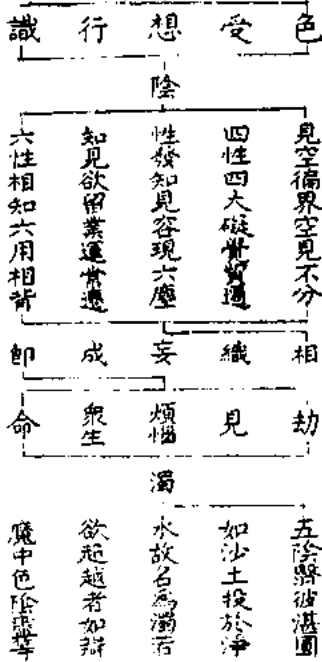 色
受
想
行
識
陰
見空徧界空見不分
四性四大礙
性發知見容現六塵
知見欲留業運常遷
六性相知六用相背
相
織
妄
成
即
劫
見
煩惱
眾生
命
濁
五陰翳彼湛圓
如沙土投於淨
水故名為濁若
欲超越者如辯
魔中色陰盡等